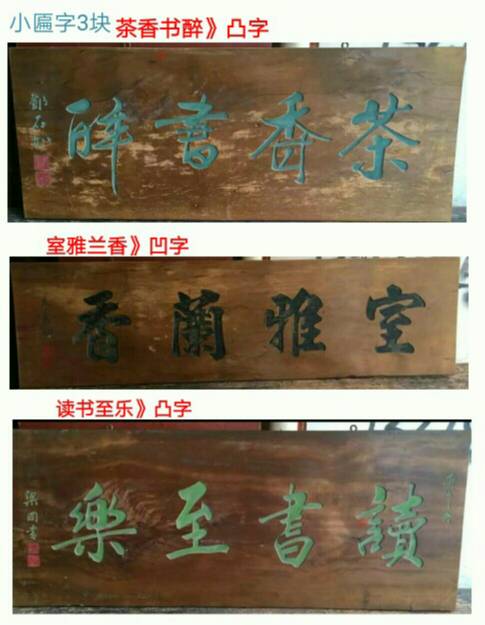 小匾字3块 茶香书醉》凸字
茶香書醉
鄧石如
室雅兰香》凹字
室雅蘭香
读书至乐》凸字
讀書至樂
梁同書